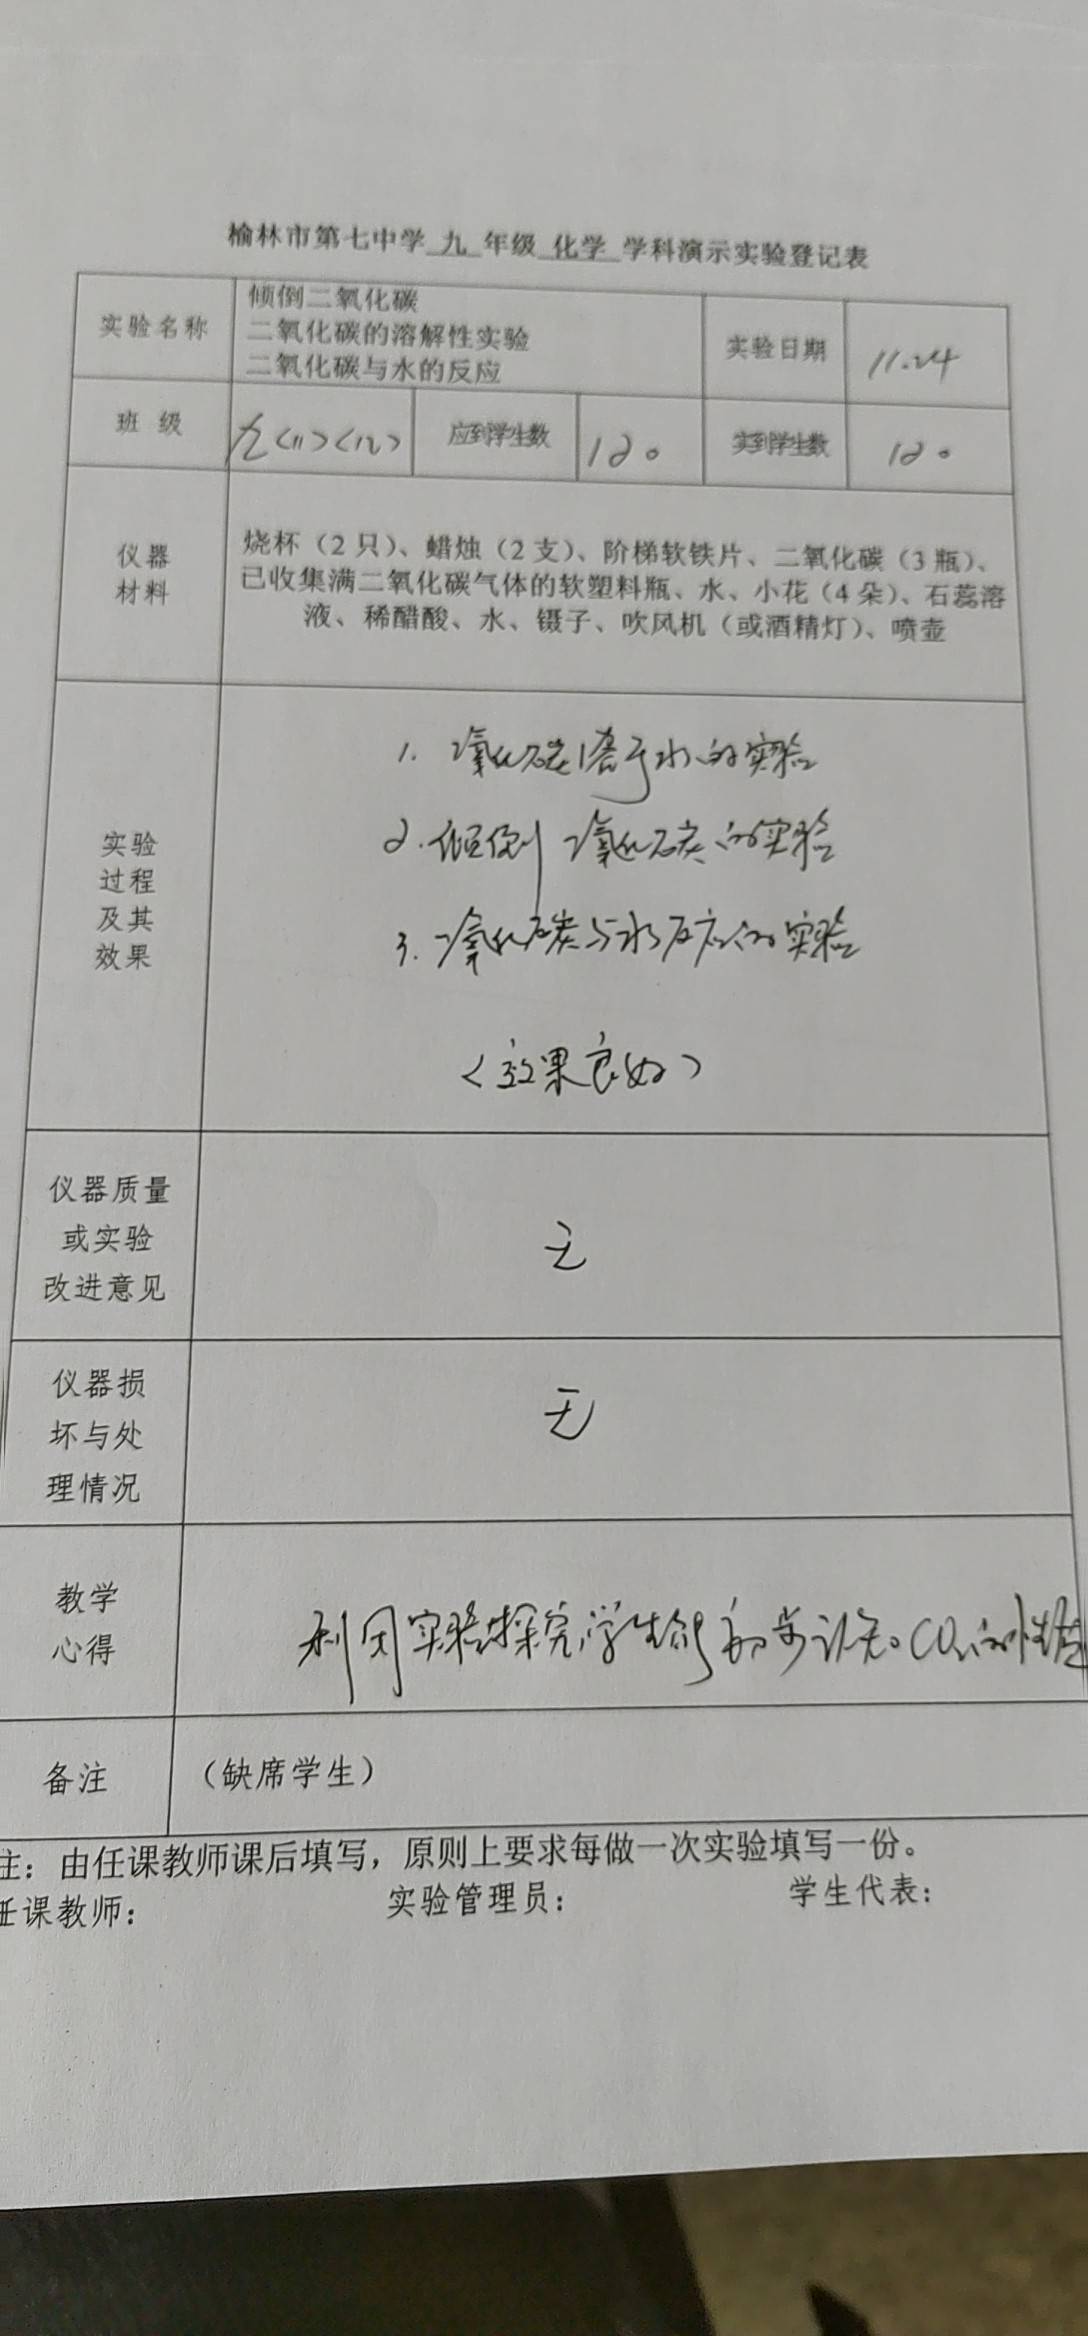 榆林市第七中学 九 年级 化学 学科演示实验登记表
实验名称
倾倒二氧化碳
二氧化碳的溶解性实验
二氧化碳与水的反应
实验日期
11.24
班 级
九<11><12>
应到学生数
120
实到学生数
120
仪器
材料
烧杯（2只）、蜡烛（2支）、阶梯软铁片、二氧化碳（3瓶）、
已收集满二氧化碳气体的软塑料瓶、水、小花（4朵）、石蕊溶
液、稀醋酸、水、镊子、吹风机（或酒精灯）、喷壶
实验
过程
及其
效果
1. 二氧化碳溶于水的实验
2. 倾倒二氧化碳的实验
3. 二氧化碳与水反应的实验
<效果良好>
仪器质量
或实验
改进意见
无
仪器损
坏与处
理情况
无
教学
心得
利用实验探究,学生能初步认知CO₂的性质
备注
（缺席学生）
注：由任课教师课后填写，原则上要求每做一次实验填写一份。
任课教师：
实验管理员：
学生代表：